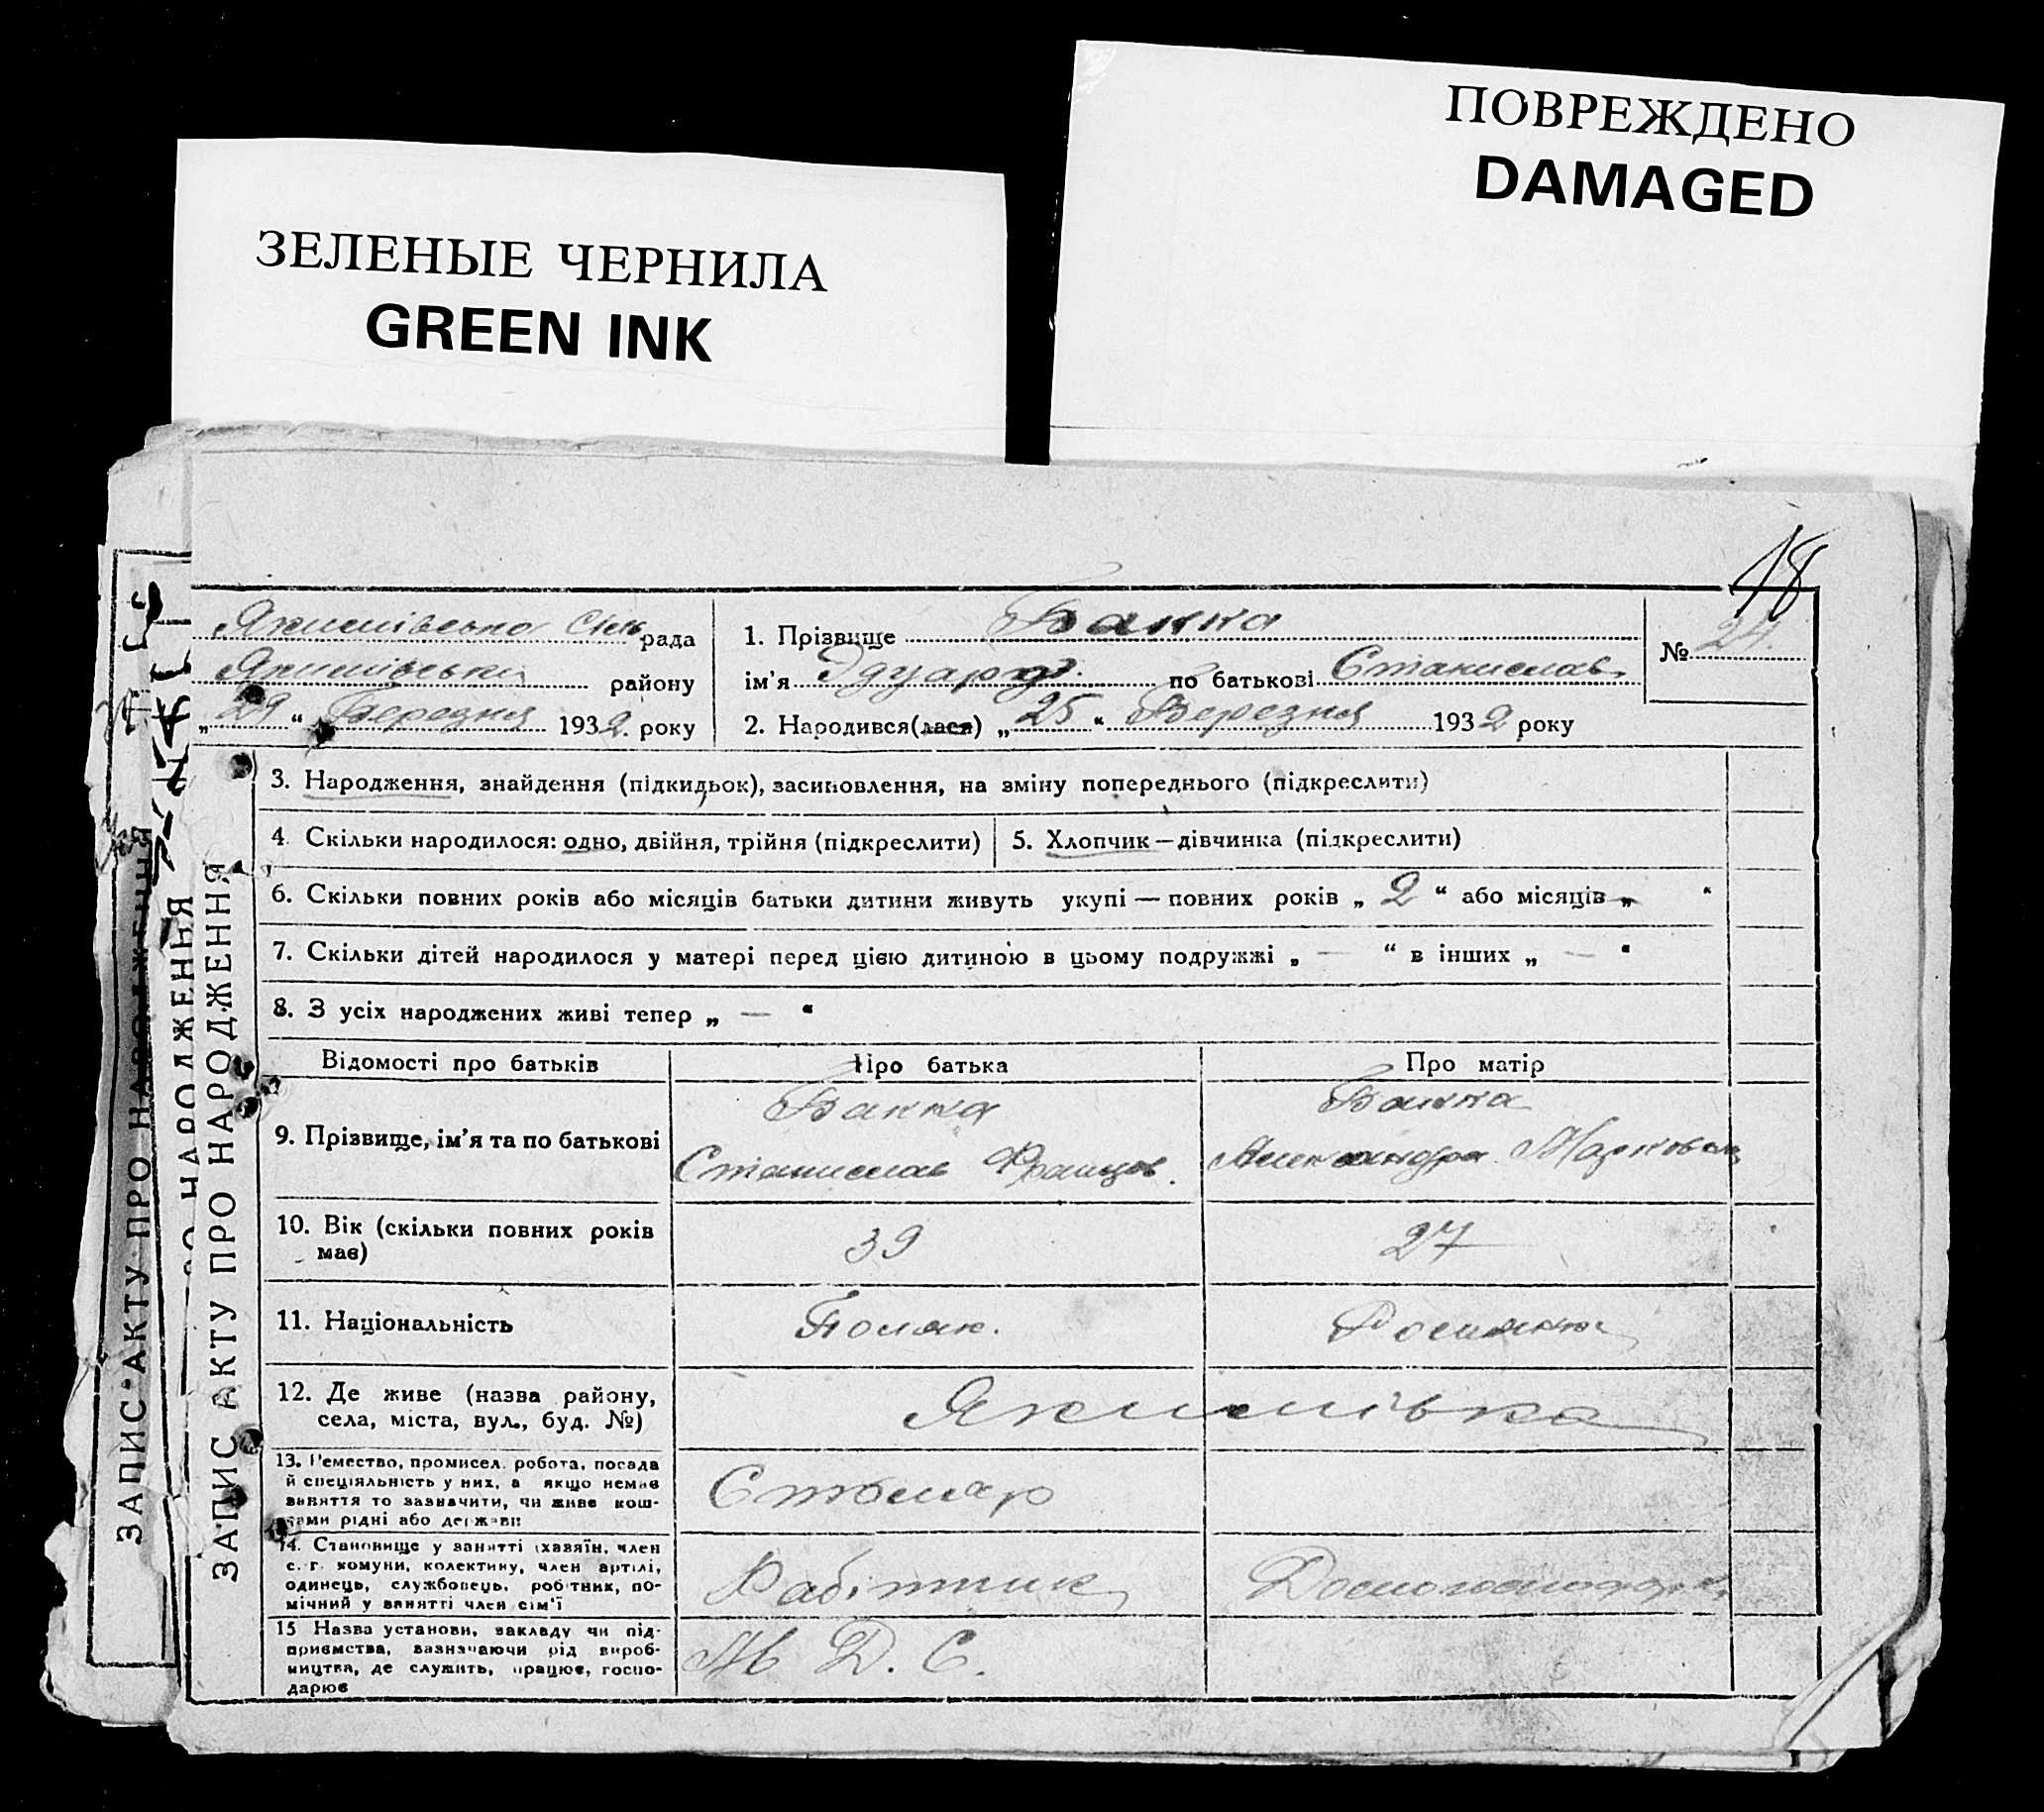 ПОВРЕЖДЕНО
DAMAGED
ЗЕЛЕНЫЕ ЧЕРНИЛА
GREEN INK
18
Якимівська Сіль рада
Якимівськи району
„29“ Березня 1932. року
1. Прізвище Банка
ім'я Эдуард. по батькові Станислав
2. Народився(лася) „25“ Березня 1932 року
№ 24.
3. Народження, знайдення (підкидьок), засиновлення, на зміну попереднього (підкреслити)
4. Скільки народилося: одно, двійня, трійня (підкреслити)
5. Хлопчик — дівчинка (підкреслити)
6. Скільки повних років або місяців батьки дитини живуть укупі — повних років „2“ або місяців „ “
7. Скільки дітей народилося у матері перед цією дитиною в цьому подружжі „ — “ в інших „ — “
8. З усіх народжених живі тепер „ — “
Відомості про батьків
Про батька
Про матір
9. Прізвище, ім'я та по батькові
Банка
Станислав Францов.
Банка
Александра Марковн
10. Вік (скільки повних років
має)
39
27
11. Національність
Поляк.
Росиянка
12. Де живе (назва району,
села, міста, вул., буд. №)
Якимівка
13. Ремество, промисел, робота, посада
й спеціяльність у них, а якщо немає
заняття то зазначити, чи живе кош-
тами рідні або держави
Столяр
14. Становище у занятті (хазяїн, член
с.-г. комуни, колективу, член артілі,
одинець, службовець, робітник, по-
мічний у занятті член сім'ї
Рабітник
Домогосподарка
15 Назва установи, закладу чи під-
приємства, зазначаючи рід вироб-
ництва, де служить, працює, госпо-
дарює
М Д. С.
ЗАПИС АКТУ ПРО НАРОДЖЕННЯ
НАРОДЖЕННЯ
ЗАПИС АКТУ ПРО НАРОДЖЕННЯ